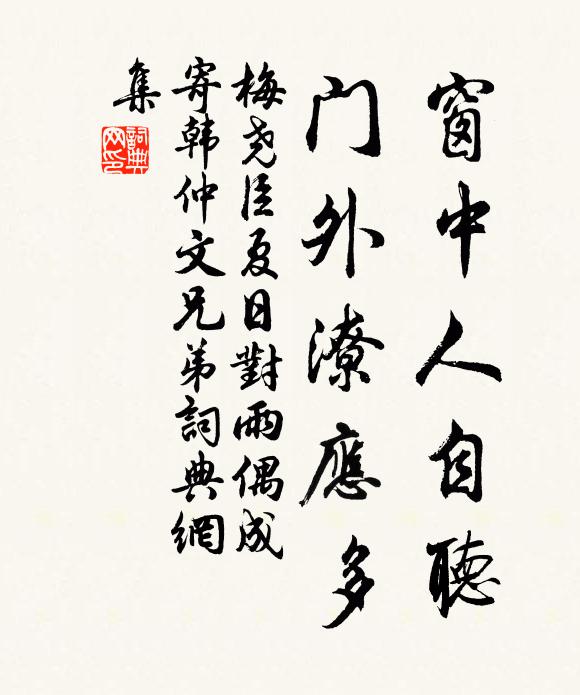 窗中人自聽
門外潦應多
梅尧臣夏日對雨偶成
寄韩仲文兄弟詞典網
集
詞典
网印